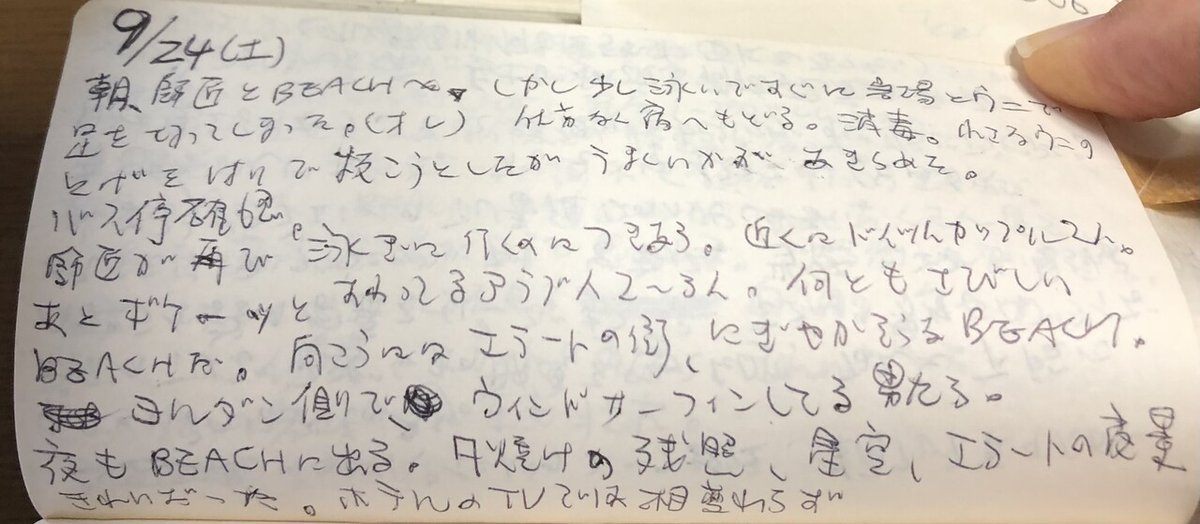 9/24(土)
朝、師匠とBEACHへ。しかし少し泳いですぐに岩場とウニで
足を切ってしまった。(オレ) 仕方なく宿へもどる。消毒。れてるウニの
とげをはりで抜こうとしたがうまくいかず あきらめた。
バス停確認。
師匠が再び泳ぎに行くのにつきあう。近くにドイツ人カップル2人。
あとボケーッとすわってるアラブ人2〜3人。何ともさびしい
BEACHだ。向こうにはエラートの街、にぎやかそうなBEACH。
ヨルダン側で、ウィンドサーフィンしてる男たち。
夜もBEACHに出る。夕焼けの残照、星空、エラートの夜景
きれいだった。ホテルのTVでは相変わらず